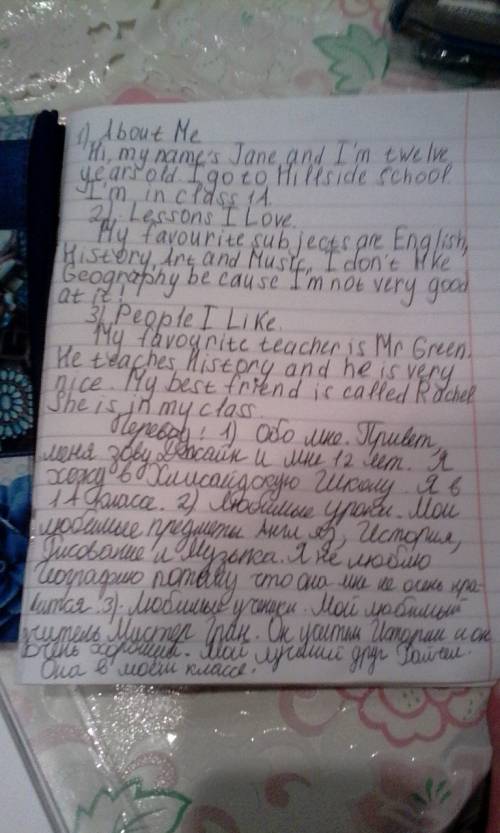 1) About Me
Hi, my name's Jane and I'm twelve
years old. I go to Hillside school.
I'm in class 1A.
2). Lessons I Love.
My favourite subjects are English,
History, Art and Music, I don't like
Geography be cause I'm not very good
at it!
3) People I Like.
My favourite teacher is Mr Green.
He teaches History and he is very
nice. My best friend is called Rachel
She is in my class.
Перевод: 1) Обо мне. Привет,
меня зовут Джайн и мне 12 лет. Я
хожу в Хилсайдскую Школу. Я в
1А классе. 2) Любимые уроки. Мои
любимые предметы Англ яз, История,
Рисование и Музыка. Я не люблю
Географию потому что она мне не очень нра-
вится. 3). Любимые ученики. Мой любимый
учитель Мистер Грин. Он учитель Истории и он
очень хороший. Мой лучший друг Рейчел.
Она в моём классе.